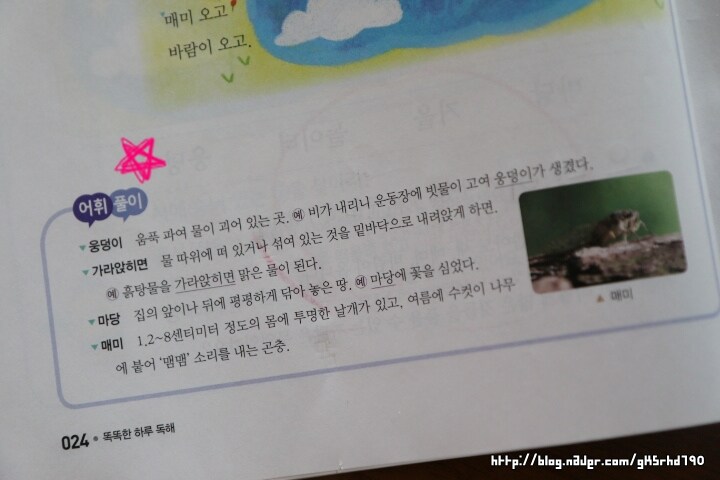 매미 오고
바람이 오고.
어휘 풀이
웅덩이 움푹 파여 물이 괴어 있는 곳. 예 비가 내리니 운동장에 빗물이 고여 웅덩이가 생겼다.
가라앉히면 물 따위에 떠 있거나 섞여 있는 것을 밑바닥으로 내려앉게 하면.
예 흙탕물을 가라앉히면 맑은 물이 된다.
마당 집의 앞이나 뒤에 평평하게 닦아 놓은 땅. 예 마당에 꽃을 심었다.
매미 1.2~8센티미터 정도의 몸에 투명한 날개가 있고, 여름에 수컷이 나무
에 붙어 '맴맴' 소리를 내는 곤충.
▲ 매미
024 • 똑똑한 하루 독해
http://blog.naver.com/gksrhd790